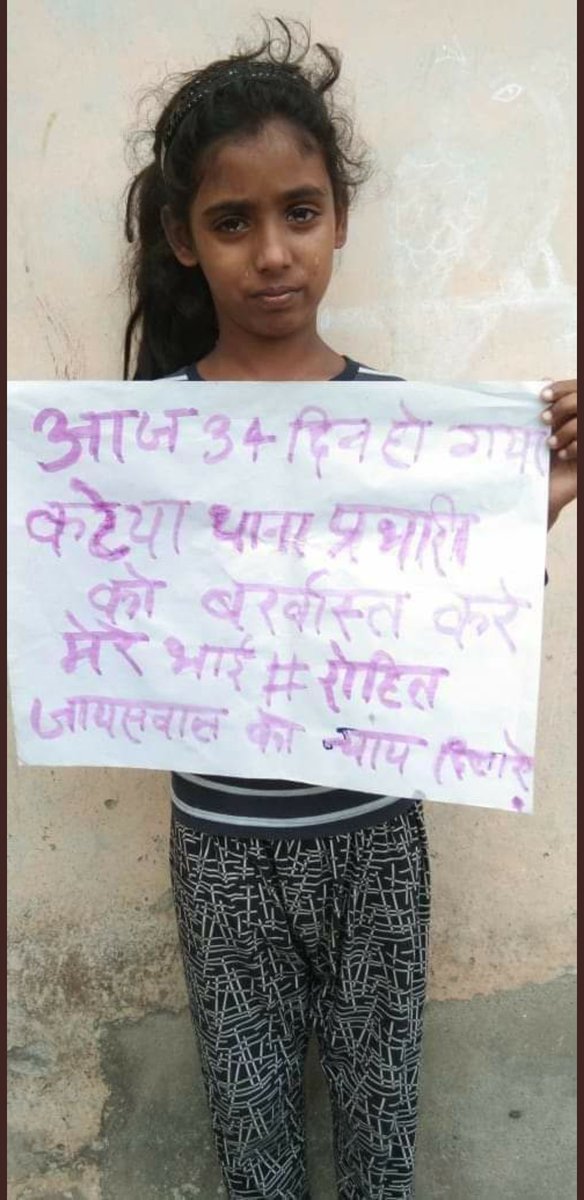 आज 34 दिन हो गया
कटेया थाना प्रभारी
को बरर्खास्त करे
मेरे भाई # रोहित
जायसवाल को न्याय